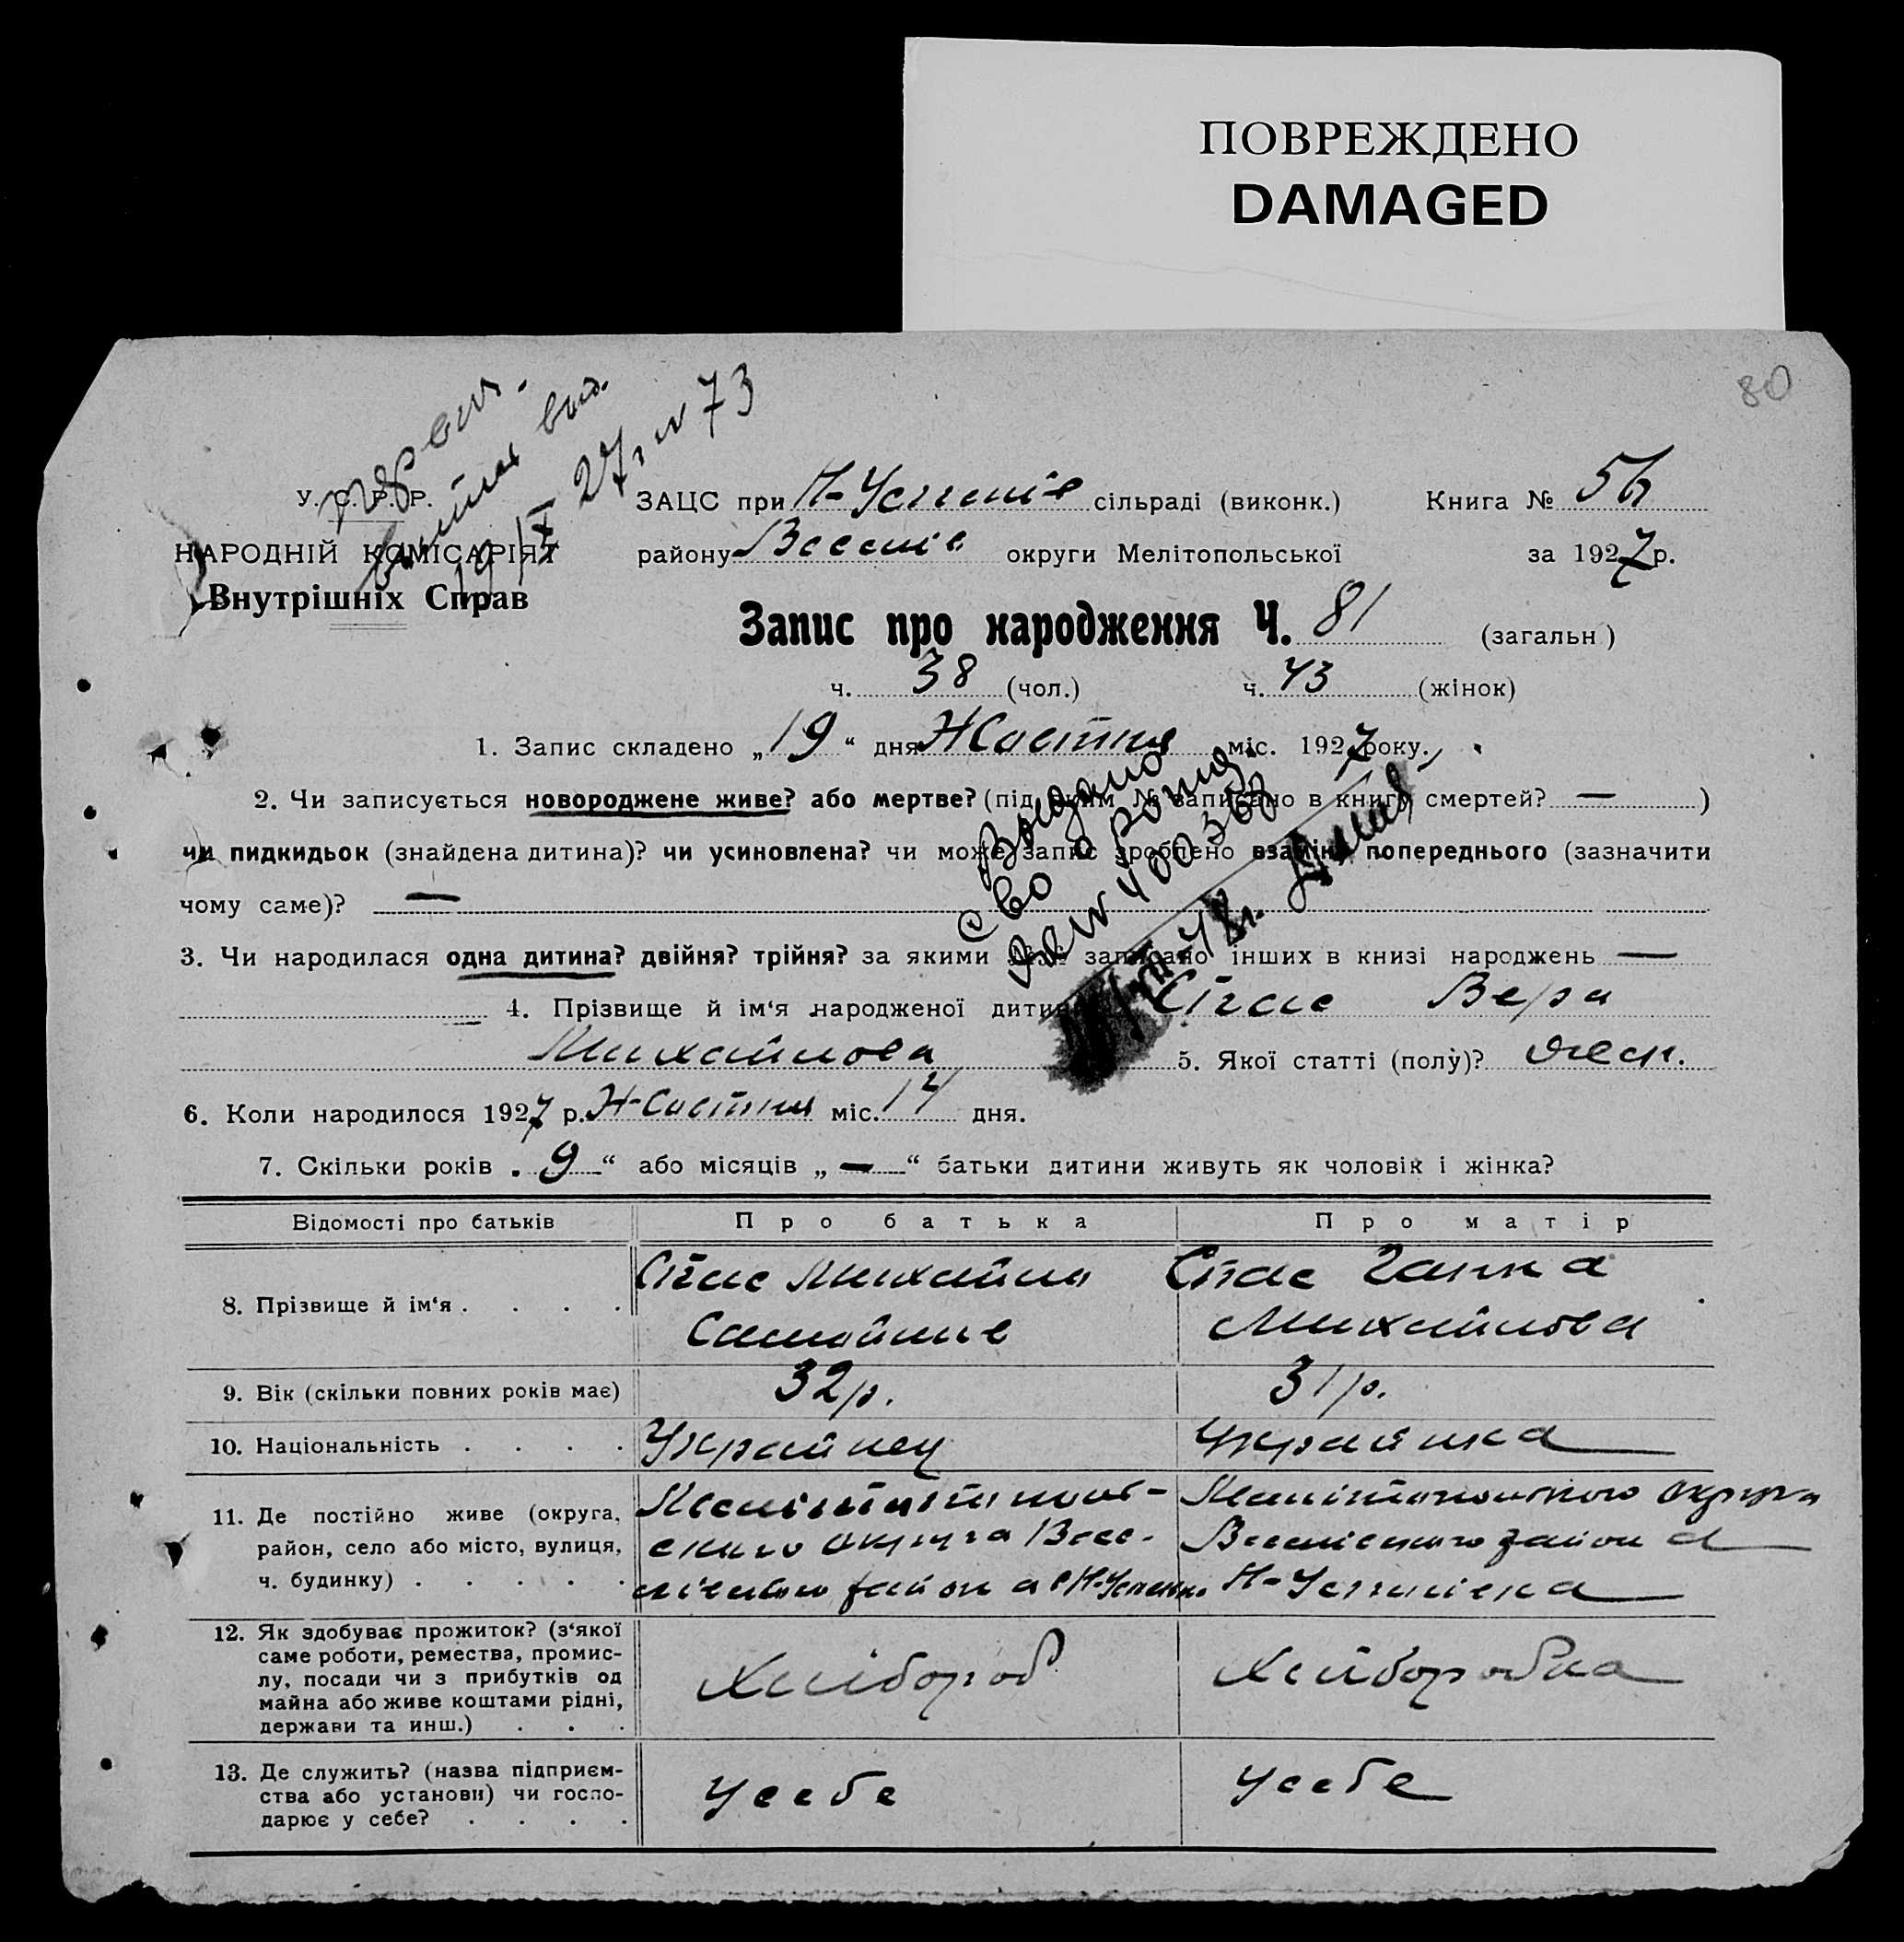 ПОВРЕЖДЕНО
DAMAGED
80
19/IX 27 г. № 73
У. С. Р. Р.
НАРОДНІЙ КОМІСАРІЯТ
Внутрішніх Справ
ЗАЦС при Н-Успенів сільраді (виконк.) Книга № 56
району Веселів округи Мелітопольської за 1927 р.
Запис про народження Ч. 81 (загальн)
ч. 38 (чол.) ч. 43 (жінок)
1. Запис складено „19“ дня Жовтня міс. 1927 року.
2. Чи записується новороджене живе? або мертве? (під яким № записано в книгу смертей? — )
чи пидкидьок (знайдена дитина)? чи усиновлена? чи може запис зроблено взамін попереднього (зазначити
чому саме)? —
Выдано
с во о рожд.
№ 400368
48 г.
3. Чи народилася одна дитина? двійня? трійня? за якими №№ записано інших в книзі народжень —
4. Прізвище й ім'я народженої дитини Спас Вера
Михайлова 5. Якої статті (полу)? жен.
6. Коли народилося 1927 р. Жовтня міс. 14 дня.
7. Скільки років „9“ або місяців „—“ батьки дитини живуть як чоловік і жінка?
Відомості про батьків Про батька Про матір
8. Прізвище й ім'я . . . . Спас Михайло Спас Ганна
Самойлів Михайлова
9. Вік (скільки повних років має) 32 р. 31 р.
10. Національність . . . . Украйнец Украінка
11. Де постійно живе (округа, Мелітопольського Округа
район, село або місто, вулиця, ского округа Весе- Веселівського района
ч. будинку) . . . . . района с Н-Успен Н-Успенівка
12. Як здобуває прожиток? (з'якої
саме роботи, ремества, промис-
лу, посади чи з прибутків од Хлібороб Хлiборобка
майна або живе коштами рідні,
держави та инш.) . . .
13. Де служить? (назва підприєм-
ства або установи) чи госпо- У себе У себе
дарює у себе? . . . .